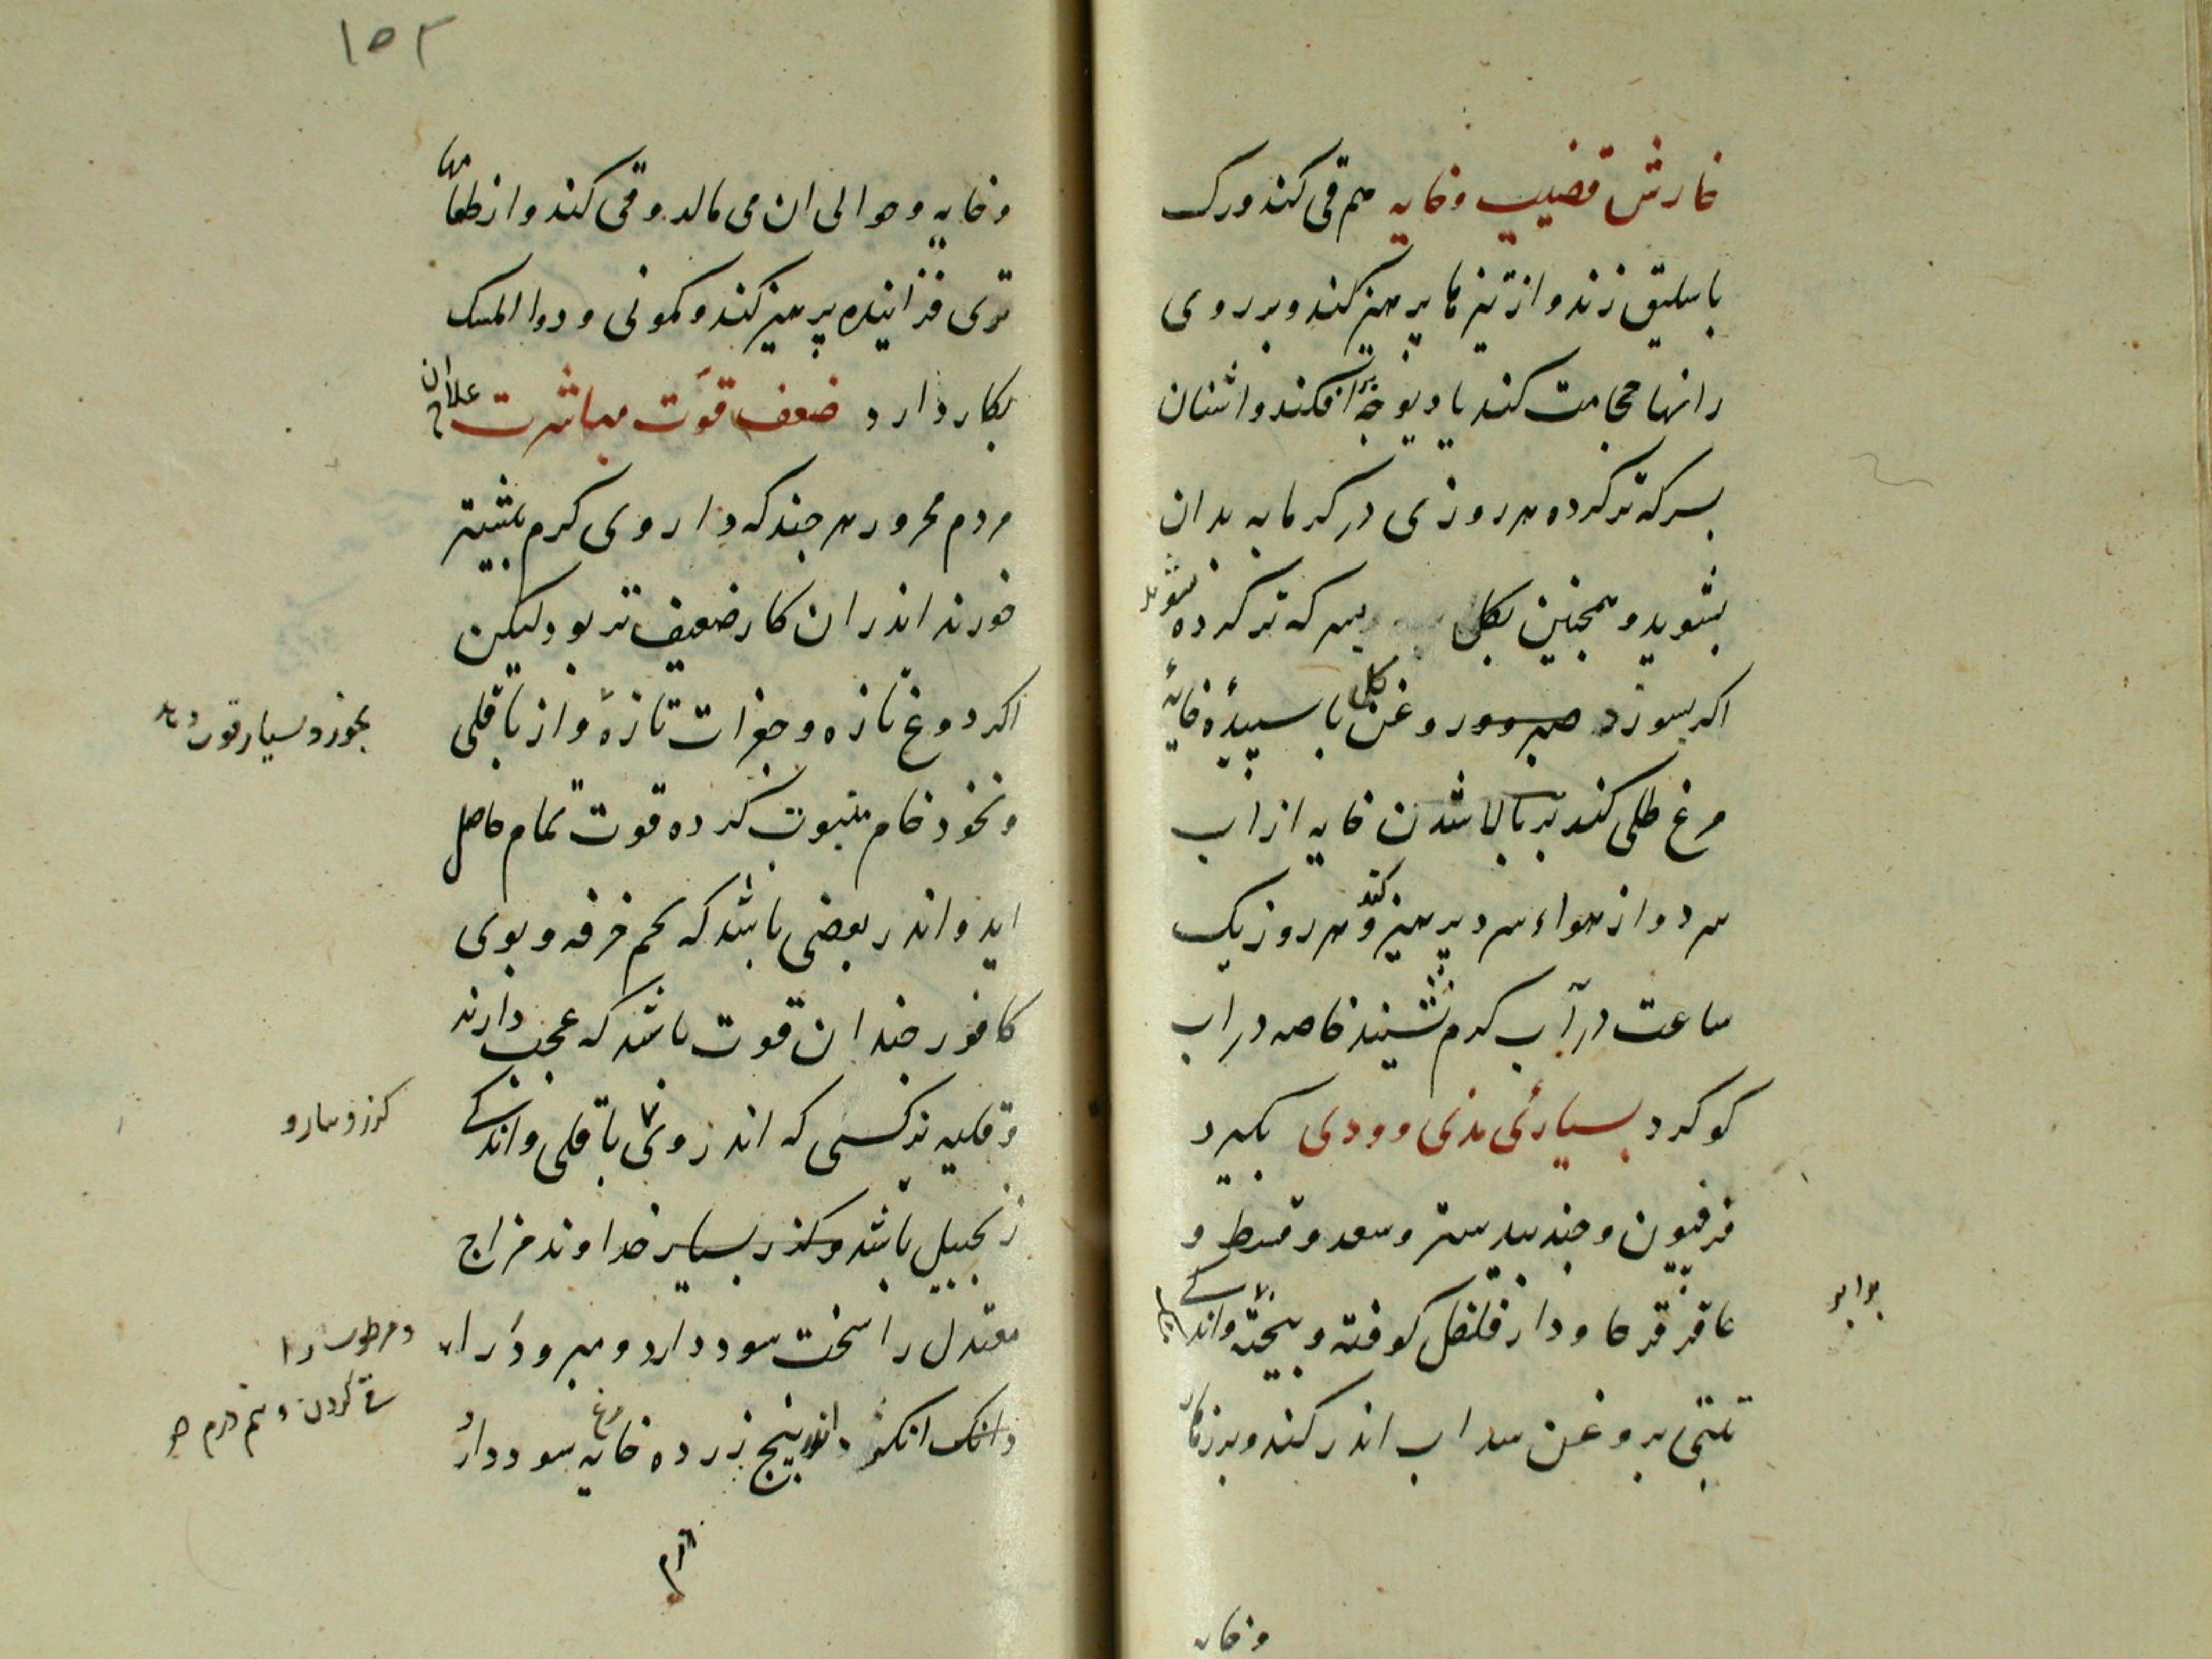 خارش قضیب و خایه هم قی کند و رک
باسلیق زند و از تیزها پرهیز کند و بر روی
رانها حجامت کند یا دیوچه بر افکند و اشنان
بسرکه تر کرده هر روزی در کرمابه بدان
بشوید و همچنین بکل بسرکه تر کرده شوید
اکر بسوزد روغن کل با سپیده خایه
مرغ طلی کند بر بالا شدن خایه از اب
سرد و از هواء سرد پرهیز کند و هر روز یک
ساعت در آب کرم نشیند خاصه در اب
کوکرد بسیارئ مذی و ودی بکیرد
فرفیون و جندبیدستر و سعد و قسط و
عاقرقرحا و دارفلفل کوفته و بیخته و اندکی
برابر
بروغن سداب اندر کند و بر زهار
و خایه
۱۵۲
و خایه و حوالی ان می مالد و قی کند و از طعامها
تری فزاینده پرهیز کند و کمونی و دوا المسک
بکار دارد ضعف قوت مباشرت علاج ان
مردم محرور هر چند که داروی کرم بیشتر
خورند اندر ان کار ضعیف تر بود و لیکن
اکر دوغ تازه و جغرات تازه و از باقلی
بخورد بسیار قوت دهد
و نخود خام کرده قوت تمام حاصل
اید و اندر بعضی باشد که تخم خرفه و بوی
کافور چندان قوت باشد که عجب دارند
و قلیه نرکسی که اندر وی باقلی و اندکی
زنجبیل باشد و کزر بسیار خداوند مزاج
معتدل را سخت سود دارد و مبرود را
و مرطوب را
دانک انکژد اندر پنج زرده خایه مرغ سود دارد